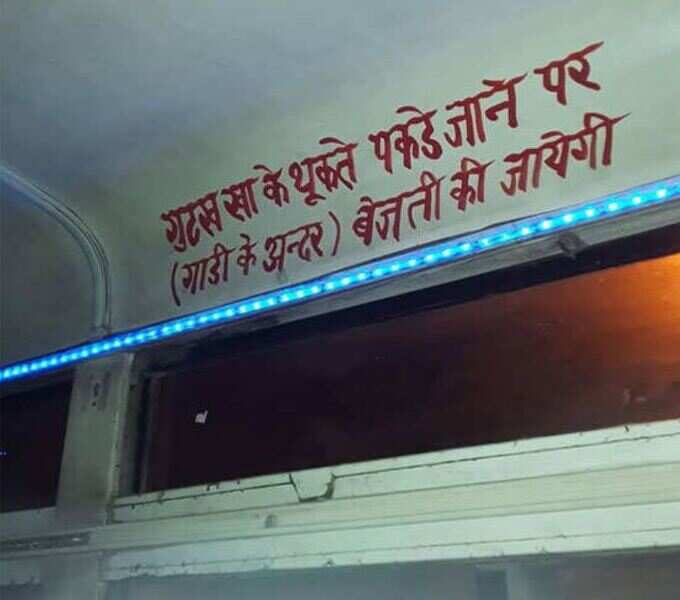 गुटखा खा के थूकते पकडे जाने पर
(गाडी के अन्दर) बेजती की जायेगी